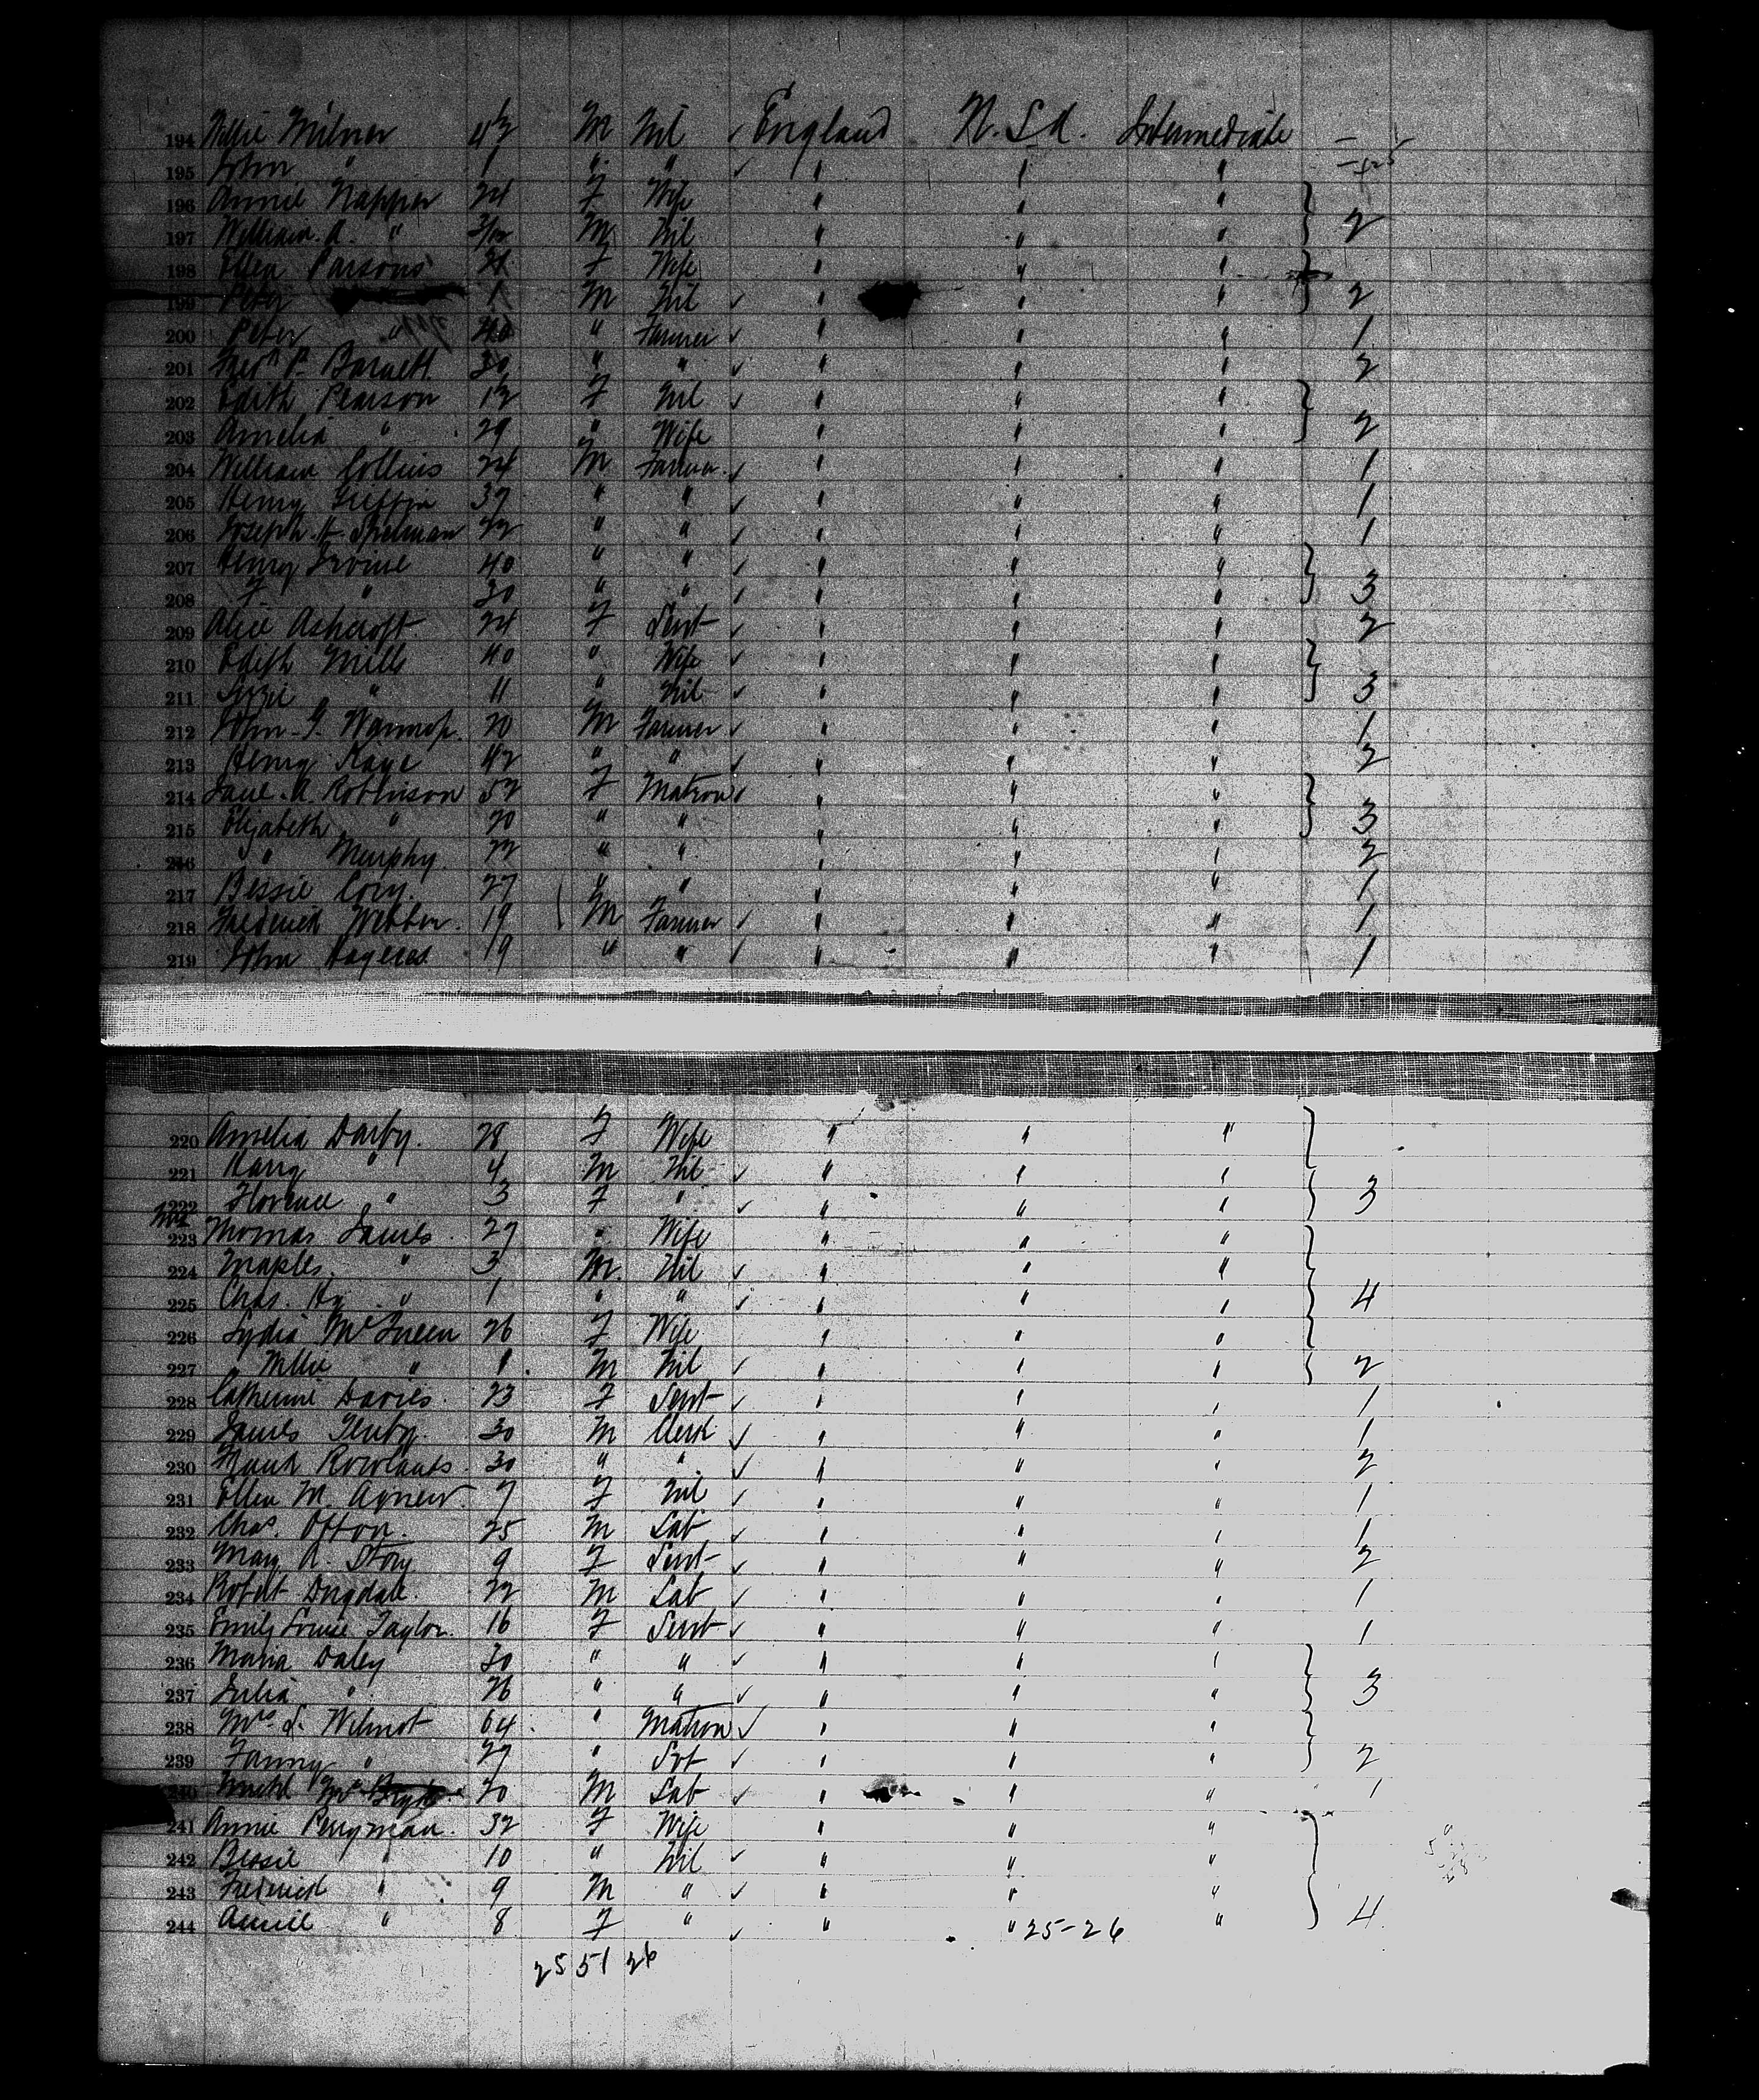 194 Willie Milner 4½ M Nil ✓ England U.S.A. Intermediate –
195 John " 1 " " ✓ " " "
196 Annie Napper 24 F Wife " " " }
197 William A. " 3/12 M Nil " " " } 2
198 Ellen Parsons 21 F Wife " " " }
199 Peter 1 M Nil ✓ " " " } 2
200 Peter " 40 " Farmer ✓ " " " 1
201 Fredk P. Barnett 30 " " ✓ " " " 2
202 Edith Pearson 12 F Nil ✓ " " " }
203 Amelia " 29 " Wife " " " } 2
204 William Collins 24 M Farmer ✓ " " " 1
205 Henry Griffin 37 " " ✓ " " " 1
206 Joseph H. Spelman 22 " " ✓ " " " 1
207 Henry Irvine 40 " " ✓ " " " }
208 F " 30 " " ✓ " " " } 3
209 Alice Ashcroft 24 F Servt ✓ " " " 2
210 Edith Mills 40 " Wife ✓ " " " }
211 Lizzie " 11 " Nil ✓ " " " } 3
212 John G. Wannop 20 M Farmer ✓ " " " 1
213 Henry Kaye 42 " " ✓ " " " 2
214 Jane A. Robinson 52 F Matron ✓ " " " }
215 Elizabeth " 20 " " " " " } 3
216 " Murphy 22 " " " " " 2
217 Bessie Cory 27 " " " " " 1
218 Frederick Webber 19 M Farmer ✓ " " " 1
219 John 19 " " ✓ " " " 1
220 Amelia Darby 28 F Wife " " " }
221 Harry " 4 M Nil ✓ " " "
222 Florence " 3 F " ✓ " " " } 3
223 Mrs Thomas James 27 " Wife " " " }
224 Maples " 3 M Nil ✓ " " "
225 Chas. Hy " 1 " " ✓ " " " } 4
226 Lydia 26 F Wife " " " }
227 Willie " 1 M Nil ✓ " " " } 2
228 Catherine Davies 23 F Servt ✓ " " " 1
229 James 30 M Clerk ✓ " " " 1
230 Rowlands 30 " " ✓ " " " 2
231 Ellen M. Agnew 7 F Nil ✓ " " " 1
232 Chas. Offon 25 M Lab ✓ " " " 1
233 Mary A. Story 9 F Servt ✓ " " " 2
234 Robert Dugdale 22 M Lab ✓ " " " 1
235 Emily Louise Taylor 16 F Servt ✓ " " " 1
236 Maria Daley 30 " " ✓ " " " }
237 Julia " 26 " " ✓ " " " } 3
238 Mrs S. Wilmot 64 " Matron ✓ " " " }
239 Fanny " 27 " Svt ✓ " " " } 2
240 20 M Lab ✓ " " " 1
241 Annie Perryman 32 F Wife " " " }
242 Bessie " 10 " Nil ✓ " " "
243 Frederick " 9 M " ✓ " " "
244 Annie " 8 F " ✓ " " 25-26 " } 4
25 51 26